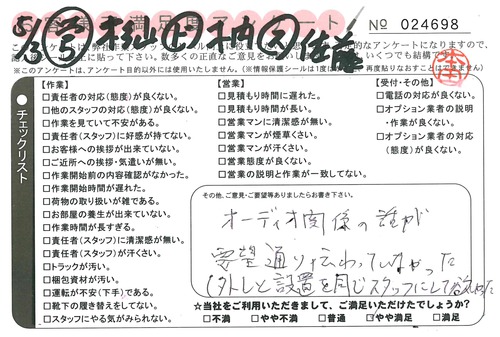 お客様満足度アンケート
№ 024698
5/3 ㊄ 杉山 ㊤ 柄 ㊁ 佐藤
※このアンケートは、アンケート目的以外には使用いたしません。
チェックリスト
【作業】
□責任者の対応(態度)が良くない。
□他のスタッフの対応(態度)が良くない。
□作業を見ていて不安がある。
□責任者(スタッフ)に好感が持てない。
□お客様への挨拶が出来ていない。
□ご近所への挨拶・気遣いが無い。
□作業開始前の内容確認がなかった。
□作業開始時間が遅れた。
□荷物の取り扱いが雑である。
□お部屋の養生が出来ていない。
□作業時間が長すぎる。
□責任者(スタッフ)に清潔感が無い。
□責任者(スタッフ)が汗くさい。
□トラックが汚い。
□梱包資材が汚い。
□運転が不安(下手)である。
□靴下の履き替えをしてない。
□スタッフにやる気がみられない。
【営業】
□見積もり時間に遅れた。
□見積もり時間が長い。
□営業マンに清潔感が無い。
□営業マンが煙草くさい。
□営業マンが汗くさい。
□営業態度が良くない。
□営業の説明と作業が一致してない。
【受付・その他】
□電話の対応が良くない。
□オプション業者の説明
・作業が良くない。
□オプション業者の対応
(態度)が良くない。
その他、ご意見・ご要望等ありましたらお書き下さい。
オーディオ関係の誰が
要望通り伝わっていなかった
(外しと設置を同じスタッフにして欲しかった
☆当社をご利用いただきまして、ご満足いただけたでしょうか?
□不満 □やや不満 □普通 □やや満足 □満足